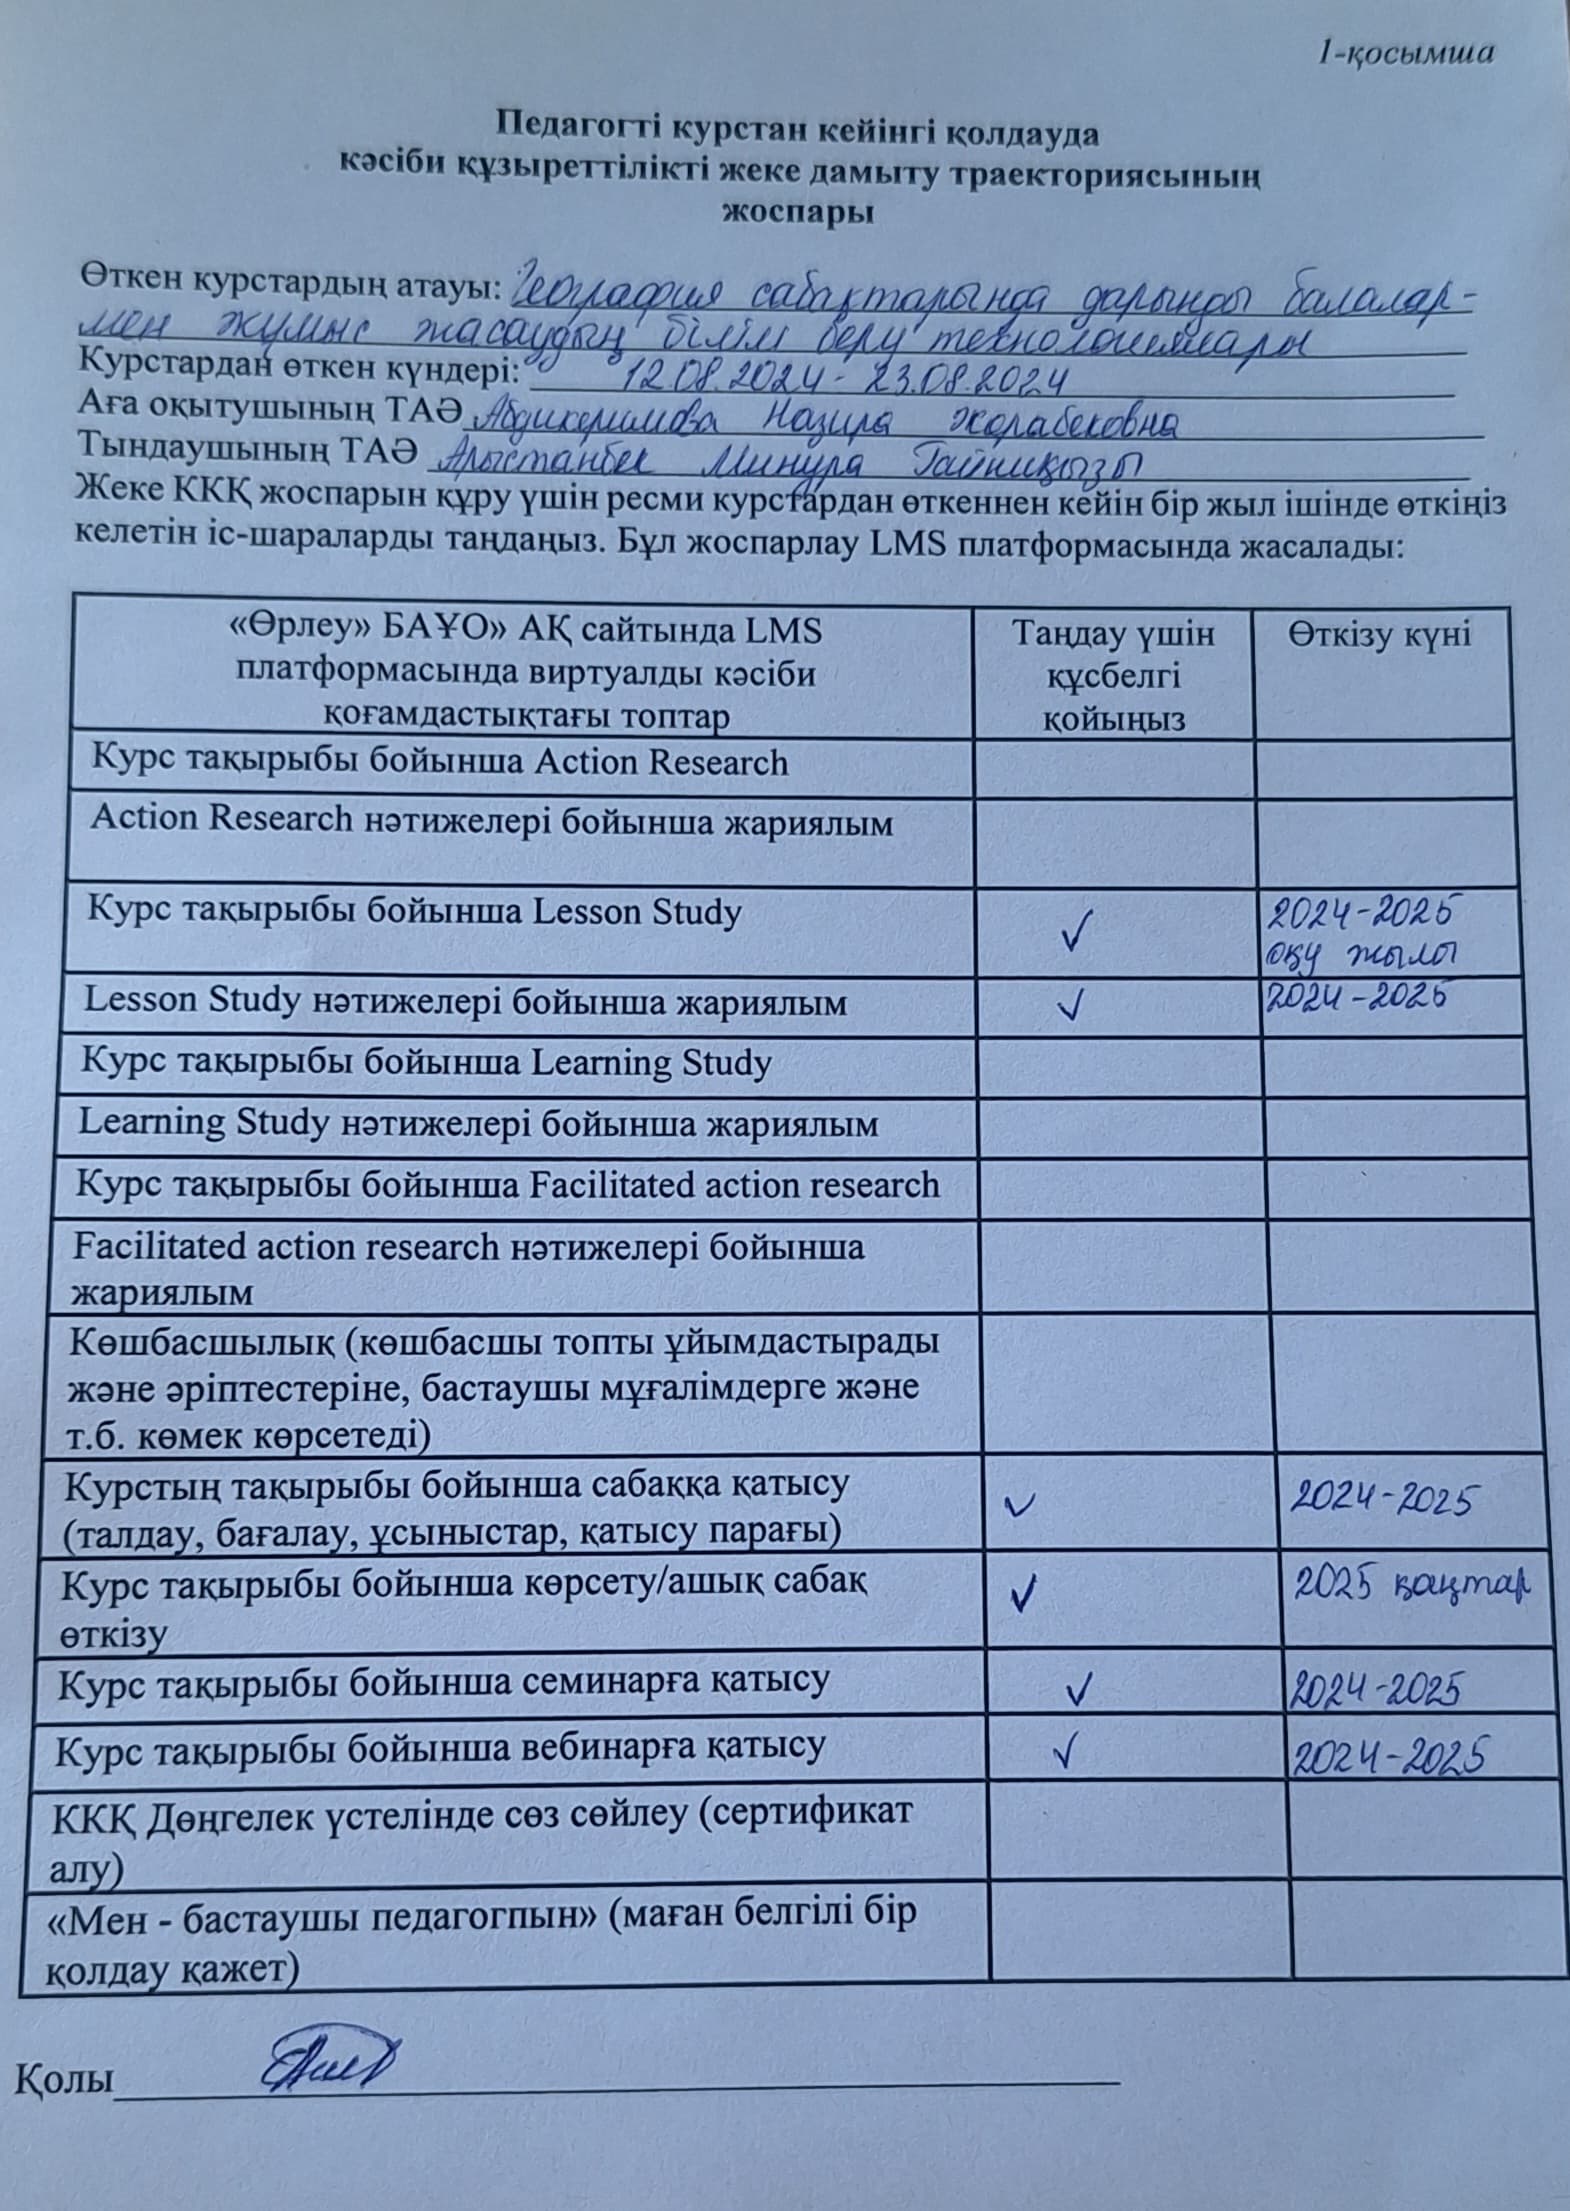 1-қосымша
Педагогті курстан кейінгі қолдауда
кәсіби құзыреттілікті жеке дамыту траекториясының
жоспары
Өткен курстардың атауы: География сабақтарында дарынды балалар-
мен жұмыс жасаудың білім беру технологиялары
Курстардан өткен күндері: 12.08.2024 - 23.08.2024
Аға оқытушының ТАӘ Абдикеримова Назира Жорабековна
Тындаушының ТАӘ Арыстанбек Минура Ғаниқызы
Жеке ККҚ жоспарын құру үшін ресми курстардан өткеннен кейін бір жыл ішінде өткіңіз
келетін іс-шараларды таңдаңыз. Бұл жоспарлау LMS платформасында жасалады:
«Өрлеу» БАҰО» АҚ сайтында LMS
платформасында виртуалды кәсіби
қоғамдастықтағы топтар
Таңдау үшін
құсбелгі
қойыңыз
Өткізу күні
Курс тақырыбы бойынша Action Research
Action Research нәтижелері бойынша жариялым
Курс тақырыбы бойынша Lesson Study
✓
2024-2025
оқу жылы
Lesson Study нәтижелері бойынша жариялым ✓ 2024-2025
Курс тақырыбы бойынша Learning Study
Learning Study нәтижелері бойынша жариялым
Курс тақырыбы бойынша Facilitated action research
Facilitated action research нәтижелері бойынша
жариялым
Көшбасшылық (көшбасшы топты ұйымдастырады
және әріптестеріне, бастаушы мұғалімдерге және
т.б. көмек көрсетеді)
Курстың тақырыбы бойынша сабаққа қатысу
(талдау, бағалау, ұсыныстар, қатысу парағы)
✓
2024-2025
Курс тақырыбы бойынша көрсету/ашық сабақ
өткізу
✓
2025 қаңтар
Курс тақырыбы бойынша семинарға қатысу ✓ 2024-2025
Курс тақырыбы бойынша вебинарға қатысу ✓ 2024-2025
ККҚ Дөңгелек үстелінде сөз сөйлеу (сертификат
алу)
«Мен - бастаушы педагогпын» (маған белгілі бір
қолдау қажет)
Қолы